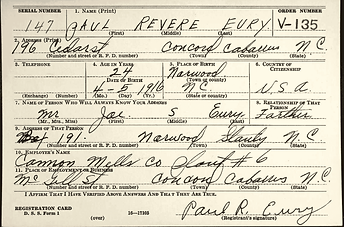 SERIAL NUMBER 1. NAME (Print) ORDER NUMBER
147 PAUL REVERE EURY V-135
(First) (Middle) (Last)
2. ADDRESS (Print)
196 Cedar st Concord Cabarrus N.C.
(Number and street or R. F. D. number) (Town) (County) (State)
3. TELEPHONE 4. AGE IN YEARS 5. PLACE OF BIRTH 6. COUNTRY OF CITIZENSHIP
24 Norwood
DATE OF BIRTH (Town or county)
4-5 1916 N.C. U.S.A
(Exchange) (Number) (Mo.) (Day) (Yr.) (State or country)
7. NAME OF PERSON WHO WILL ALWAYS KNOW YOUR ADDRESS 8. RELATIONSHIP OF THAT PERSON
Mr. Joe. S Eury Father
(Mr., Mrs., Miss) (First) (Middle) (Last)
9. ADDRESS OF THAT PERSON
191 Norwood Stanly N.C.
(Number and street or R. F. D. number) (Town) (County) (State)
10. EMPLOYER'S NAME
Cannon Mills Co Plant # 6
11. PLACE OF EMPLOYMENT OR BUSINESS
McGill St Concord Cabarrus N.C.
(Number and street or R. F. D. number) (Town) (County) (State)
I AFFIRM THAT I HAVE VERIFIED ABOVE ANSWERS AND THAT THEY ARE TRUE.
REGISTRATION CARD
D. S. S. Form 1 (over) 16—17105 Paul R. Eury
(Registrant's signature)